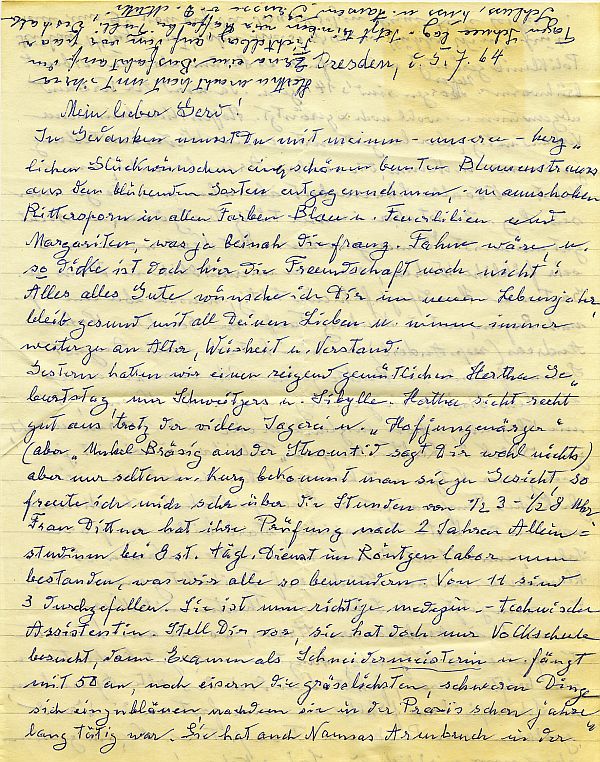 Dresden, d. 5. 7. 64
Mein lieber Gerd!
In Gedanken musst Du mit meinen - unseren - herz„
lichen Glückwünschen einen schönen bunten Blumenstrauss
aus dem blühenden Garten entgegennehmen, - mannshohen
Rittersporn in allen Farben Blau u. Feuerlilien und
Margariten, - was ja beinah die franz. Fahne wäre, u.
so dicke ist doch hier die Freundschaft noch nicht!
Alles alles Gute wünsche ich Dir im neuen Lebensjahr,
bleib gesund mit all Deinen Lieben u. nimm immer
weiter zu an Alter, Weisheit u. Verstand.
Gestern hatten wir einen reizend gemütlichen Hertha Ge„
burtstag, nur Schweitzers u. Sibylle. Hertha sieht recht
gut aus trotz der vielen Jagerei u. „Hofjungenärger"
(aber „Unkel Bräsig aus der Stromtid sagt Dir wohl nichts)
aber nur selten u. kurz bekommt man sie zu Gesicht, so
freute ich mich sehr über die Stunden von 1/2 3 - 1/2 8 Uhr.
Frau Dittner hat ihre Prüfung nach 2 Jahren Allein=
studium bei 8 st. tägl. Dienst im Röntgenlabor nun
bestanden, was wir alle so bewundern. Von 11 sind
3 durchgefallen. Sie ist nun richtige medizin. - technische
Assistentin. Stell Dir vor, sie hat doch nur Volkschule
besucht, dann Examen als Schneidermeisterin u. fängt
mit 50 an, noch eisern die grässlichsten, schweren Dinge
sich einzubläuen nachdem sie in der Praxis schon jahre„
lang tätig war. Sie hat auch Namsas Armbruch in der